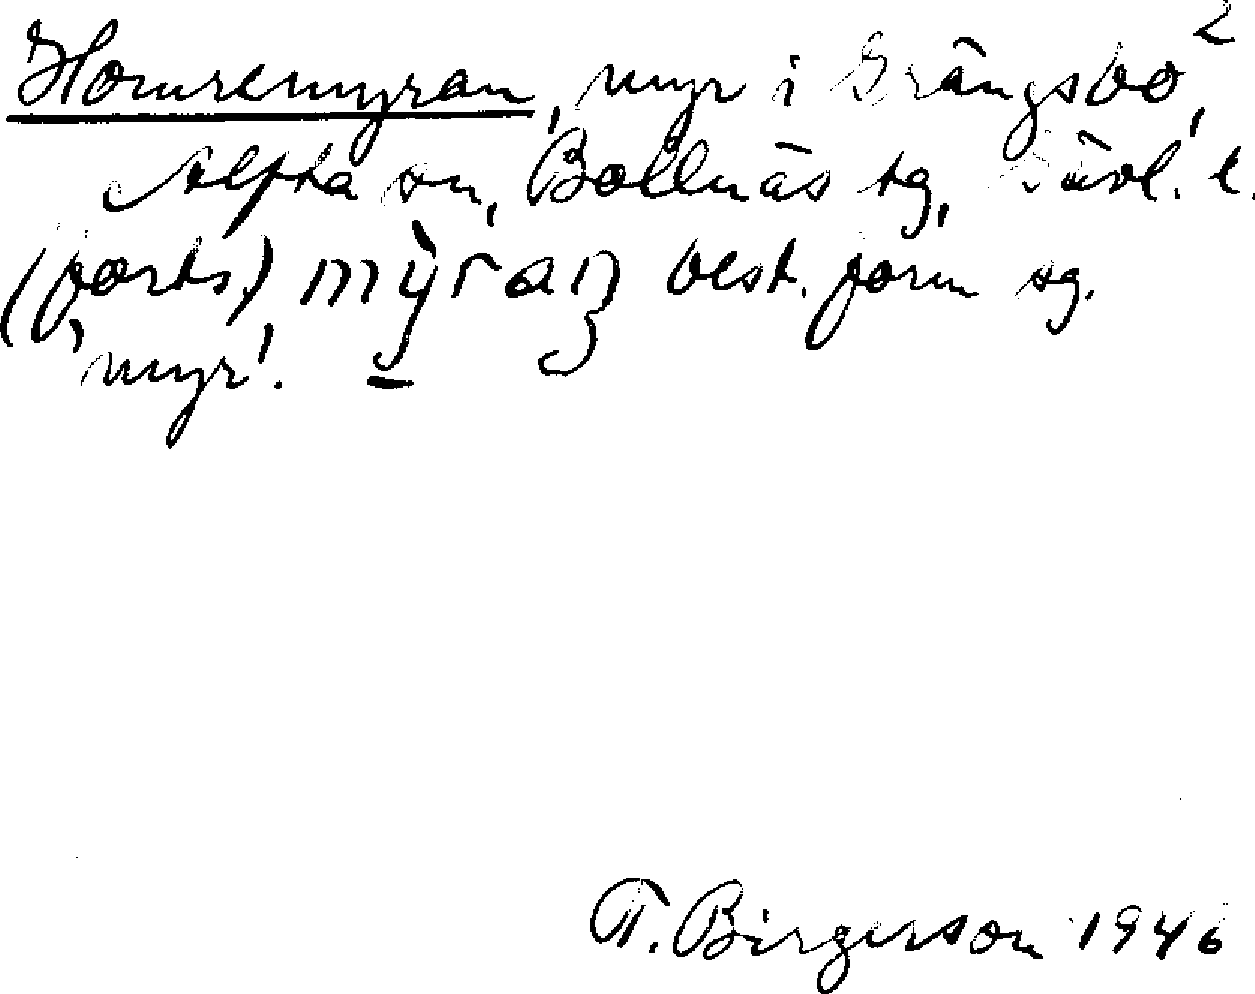 2
Homremyran, myr i Grängsbo,
Alfta sn, Bollnäs tg, Gävl. l.
(forts.) mỳran best. form sg.
'myr'.
T. Birgerson 1946